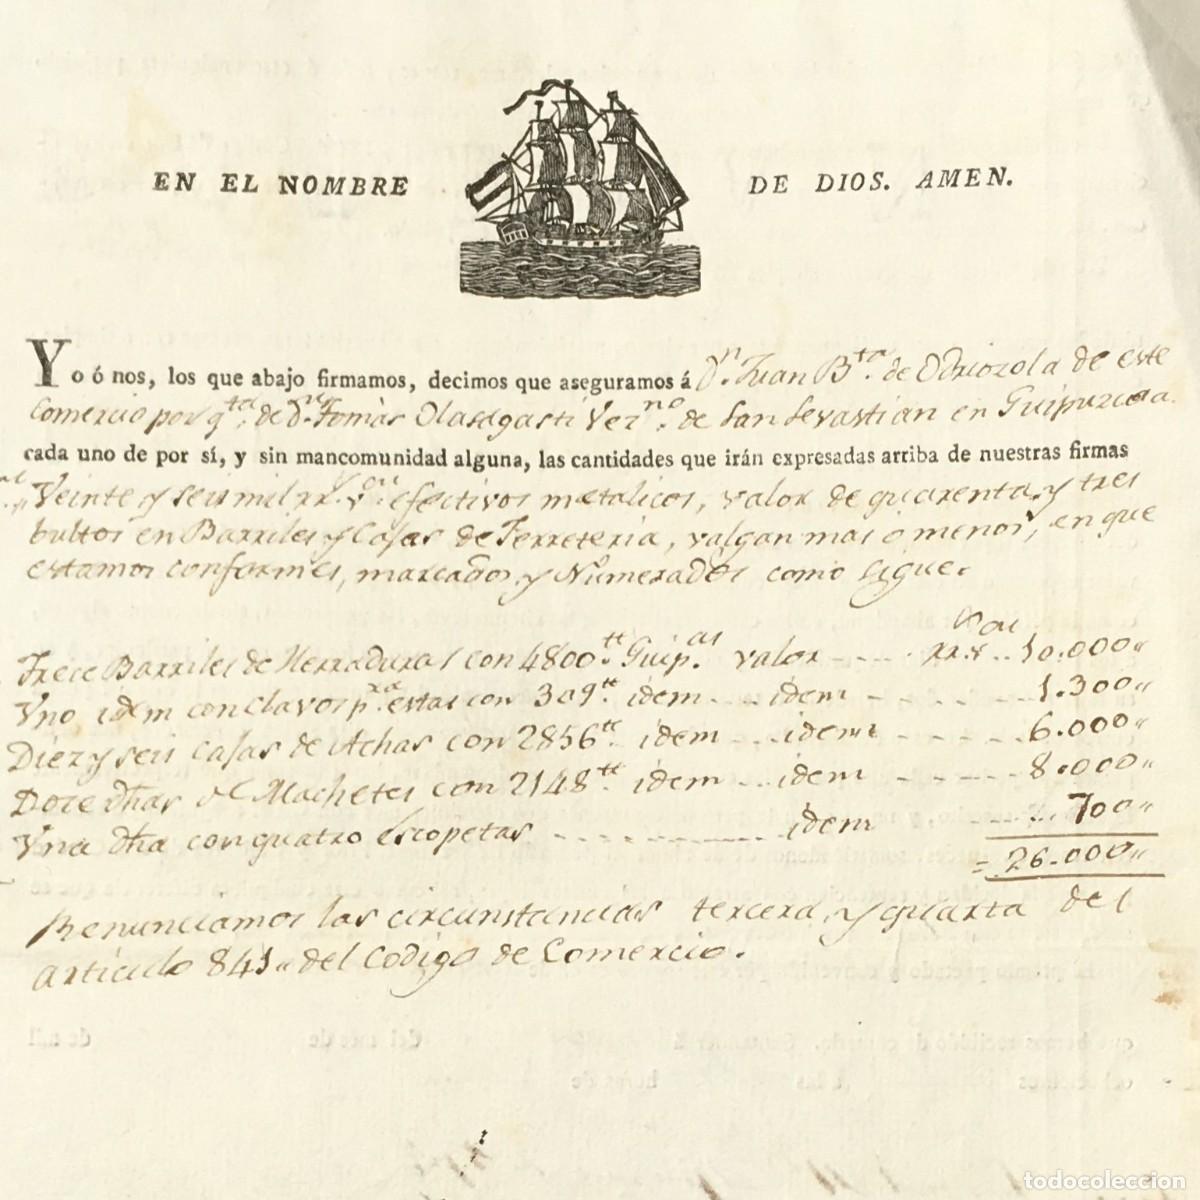 EN EL NOMBRE DE DIOS. AMEN.
Yo ó nos, los que abajo firmamos, decimos que aseguramos á Dn. Juan Bta. de Odriozola de este
Comercio por qta. de Dn. Tomàs Olasagasti Vezno. de San Sevastian en Guipuzcoa.
cada uno de por sí, y sin mancomunidad alguna, las cantidades que irán expresadas arriba de nuestras firmas
Veinte y seis mil rr. von. efectivos metalicos, valor de quarenta y tres
bultos en Barriles y Cajas de Ferreteria, valgan mas o menos, en que
estamos conformes, marcados y Numerados como sigue.
Trece Barriles de Herraduras con 4800 tt. Guipas. valor ---- rr. von. 10.000"
Yno idem con Clavos pra. estas con 309 tt. idem... idem ------ 1.300"
Diez y seis Cajas de Achas con 2856 tt. idem ... idem ------ 6.000"
Doce dhas de Machetes con 2148 tt. idem ... idem ------ 8.000"
Yna dha con quatro escopetas ------------ idem 700"
= 26.000"
Renunciamos las circunstancias tercera y quarta del
articulo 841" del Codigo de Comercio.
todocoleccion